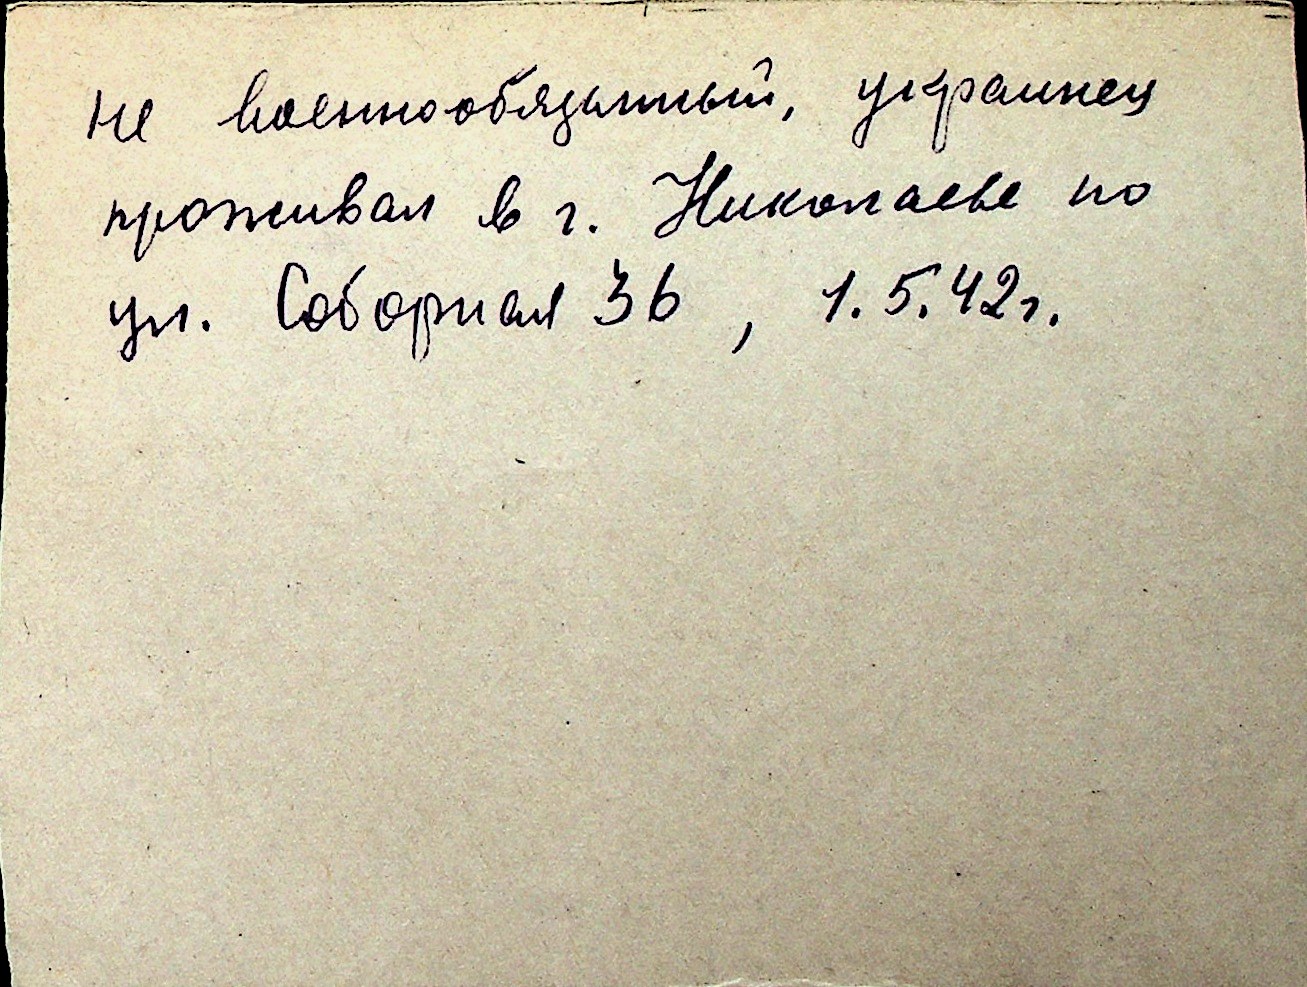 не военнообязанный, украинец
проживал в г. Николаеве по
ул. Соборная 36, 1.5.42г.